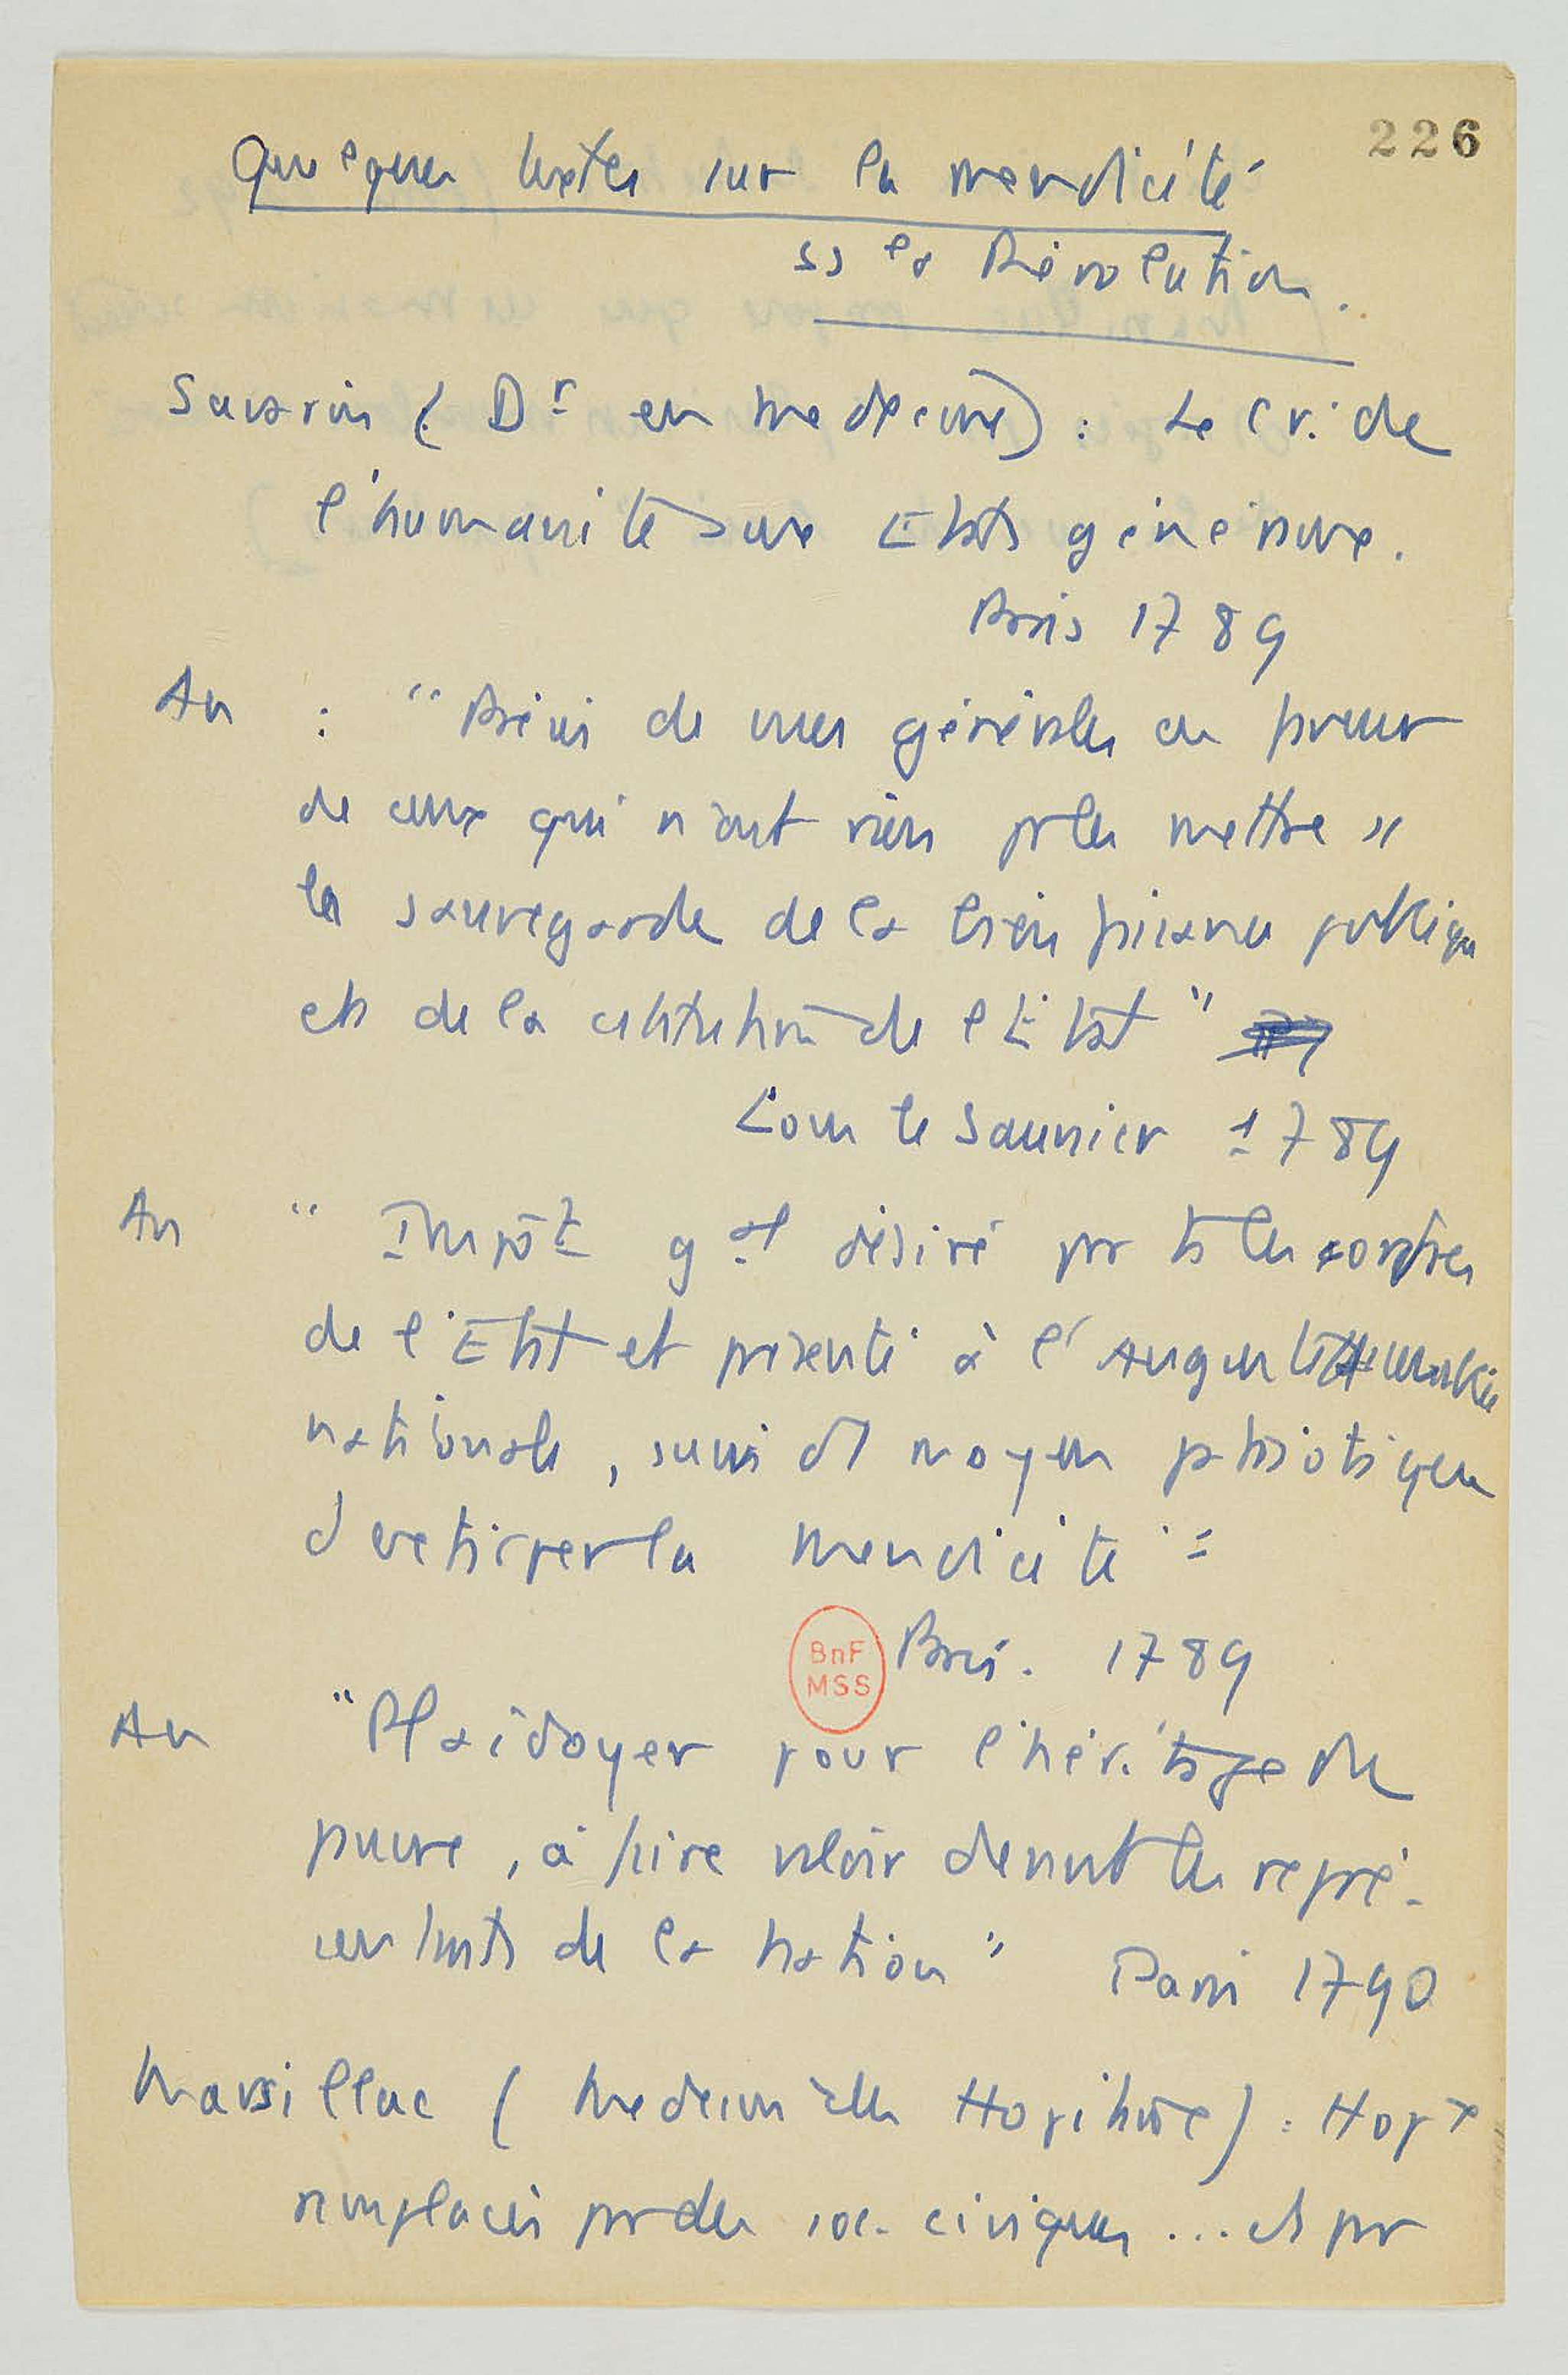 226
Quelques textes sur la mendicité
ss la Révolution.
(Dr en medecine) : Le Cri de
l'humanité aux Etats généraux.
Paris 1789
An : "Précis de vues générales en faveur
de ceux qui n'ont rien pr les mettre ss
la sauvegarde de la bienfaisance publique
et de la constitution de l'Etat"
Lons le Saunier 1789
An " Impôt gal désiré pr ts les ordres
de l'Etat et présenté à l'Auguste Assemblée
nationale, suivi d moyens patriotiques
d'extirper la mendicité"
BnF
MSS
Paris. 1789
An "Plaidoyer pour l'héritage du
pauvre, à faire valoir devant les repré-
sentants de la nation" Paris 1790
Marsillac (Medecin Hopitaux) : Hopx
remplacés pr des soc. civiques ... et pr